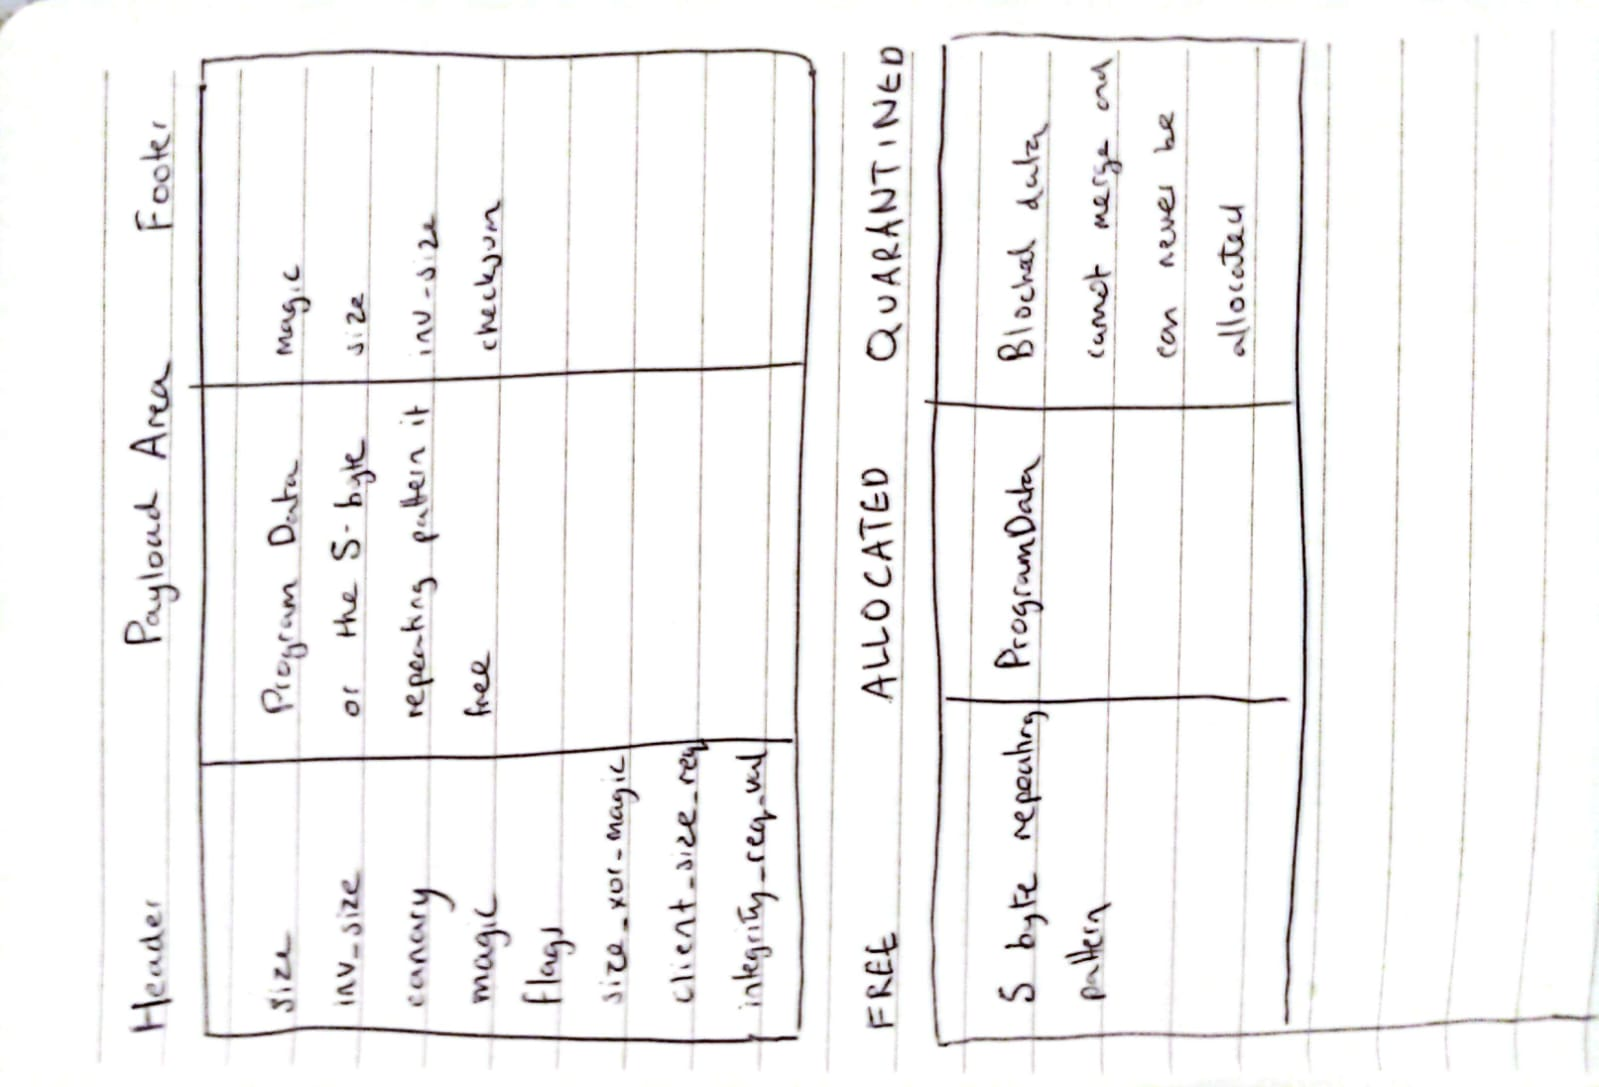 Header Payload Area Footer
size
inv_size
canary
magic
flags
size_xor-magic
client_size_req
integrity_req_val
Program Data
or the 5-byte
repeating pattern if
free
magic
size
inv-size
checksum
FREE ALLOCATED QUARANTINED
5 byte repeating
pattern
ProgramData
Blocked data
cannot merge and
can never be
allocated